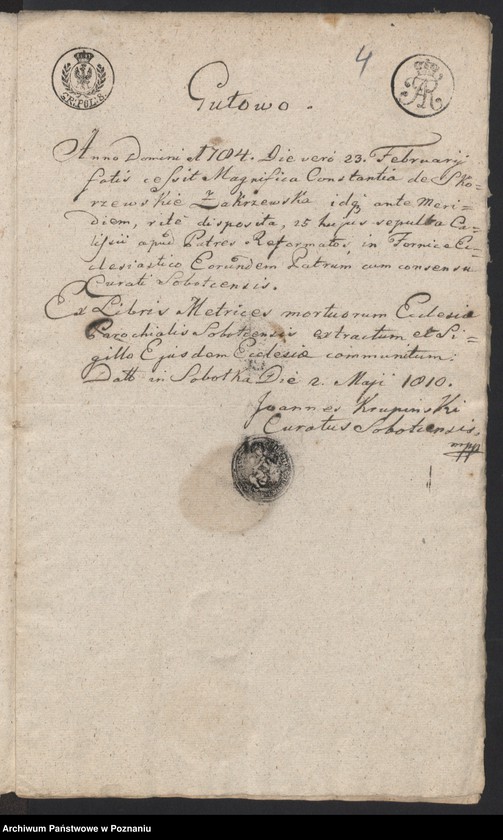 4
Gutowo.
Anno Domini 1784. Die verò 23. Februarij
fatis cessit Magnifica Constantia de Sko-
rzewskie Zakrzewska idq ante Meri-
diem, ritè disposita, 25 hujus sepulta Ca-
lissii apud Patres Reformatos, in Fornice Ec-
clesiastico Eorundem Patrum cum consensu
Curati Sobotcensis.
Ex Libris Metrices mortuorum Ecclesiæ
Parochialis Sobotcensis extractum et Si-
gillo Ejusdem Ecclesiæ communitum.
Datt in Sobotka Die 2. Maji 1810.
Joannes Krupinski
Curatus Sobotcensis.
mpp
Archiwum Państwowe w Poznaniu